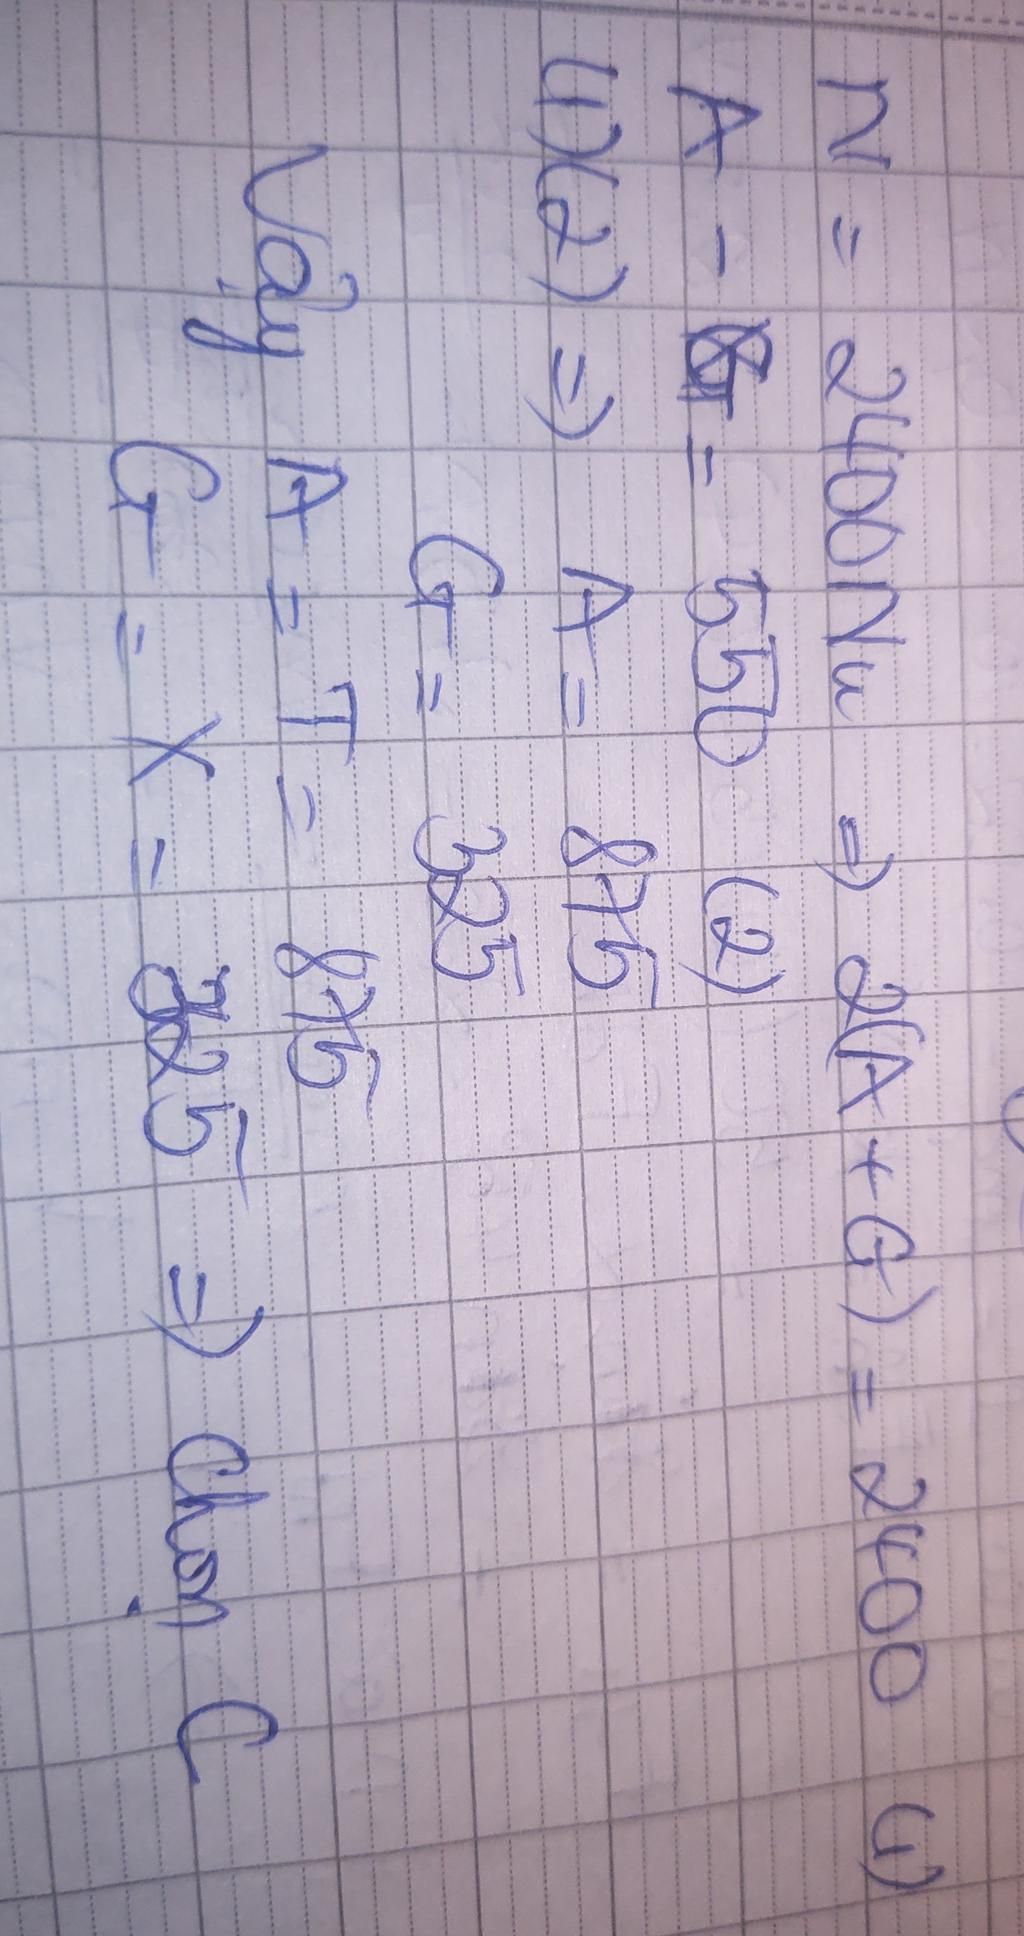 N = 2400Nu => 2(A + G) = 2400 (1)
A - G = 550 (2)
(1)(2) => A = 875
G = 325
Vậy A = T = 875
G = X = 325 => Chọn C